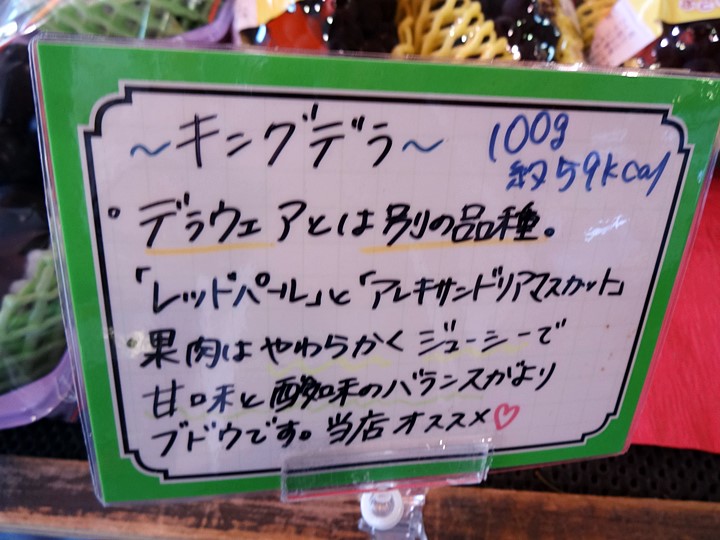 ～キングデラ～
100g
約59kcal
。デラウェアとは別の品種。
「レッドパール」と「アレキサンドリアマスカット」
・果肉はやわらかくジューシーで
甘味と酸味のバランスがより
ブドウです。当店オススメ♡